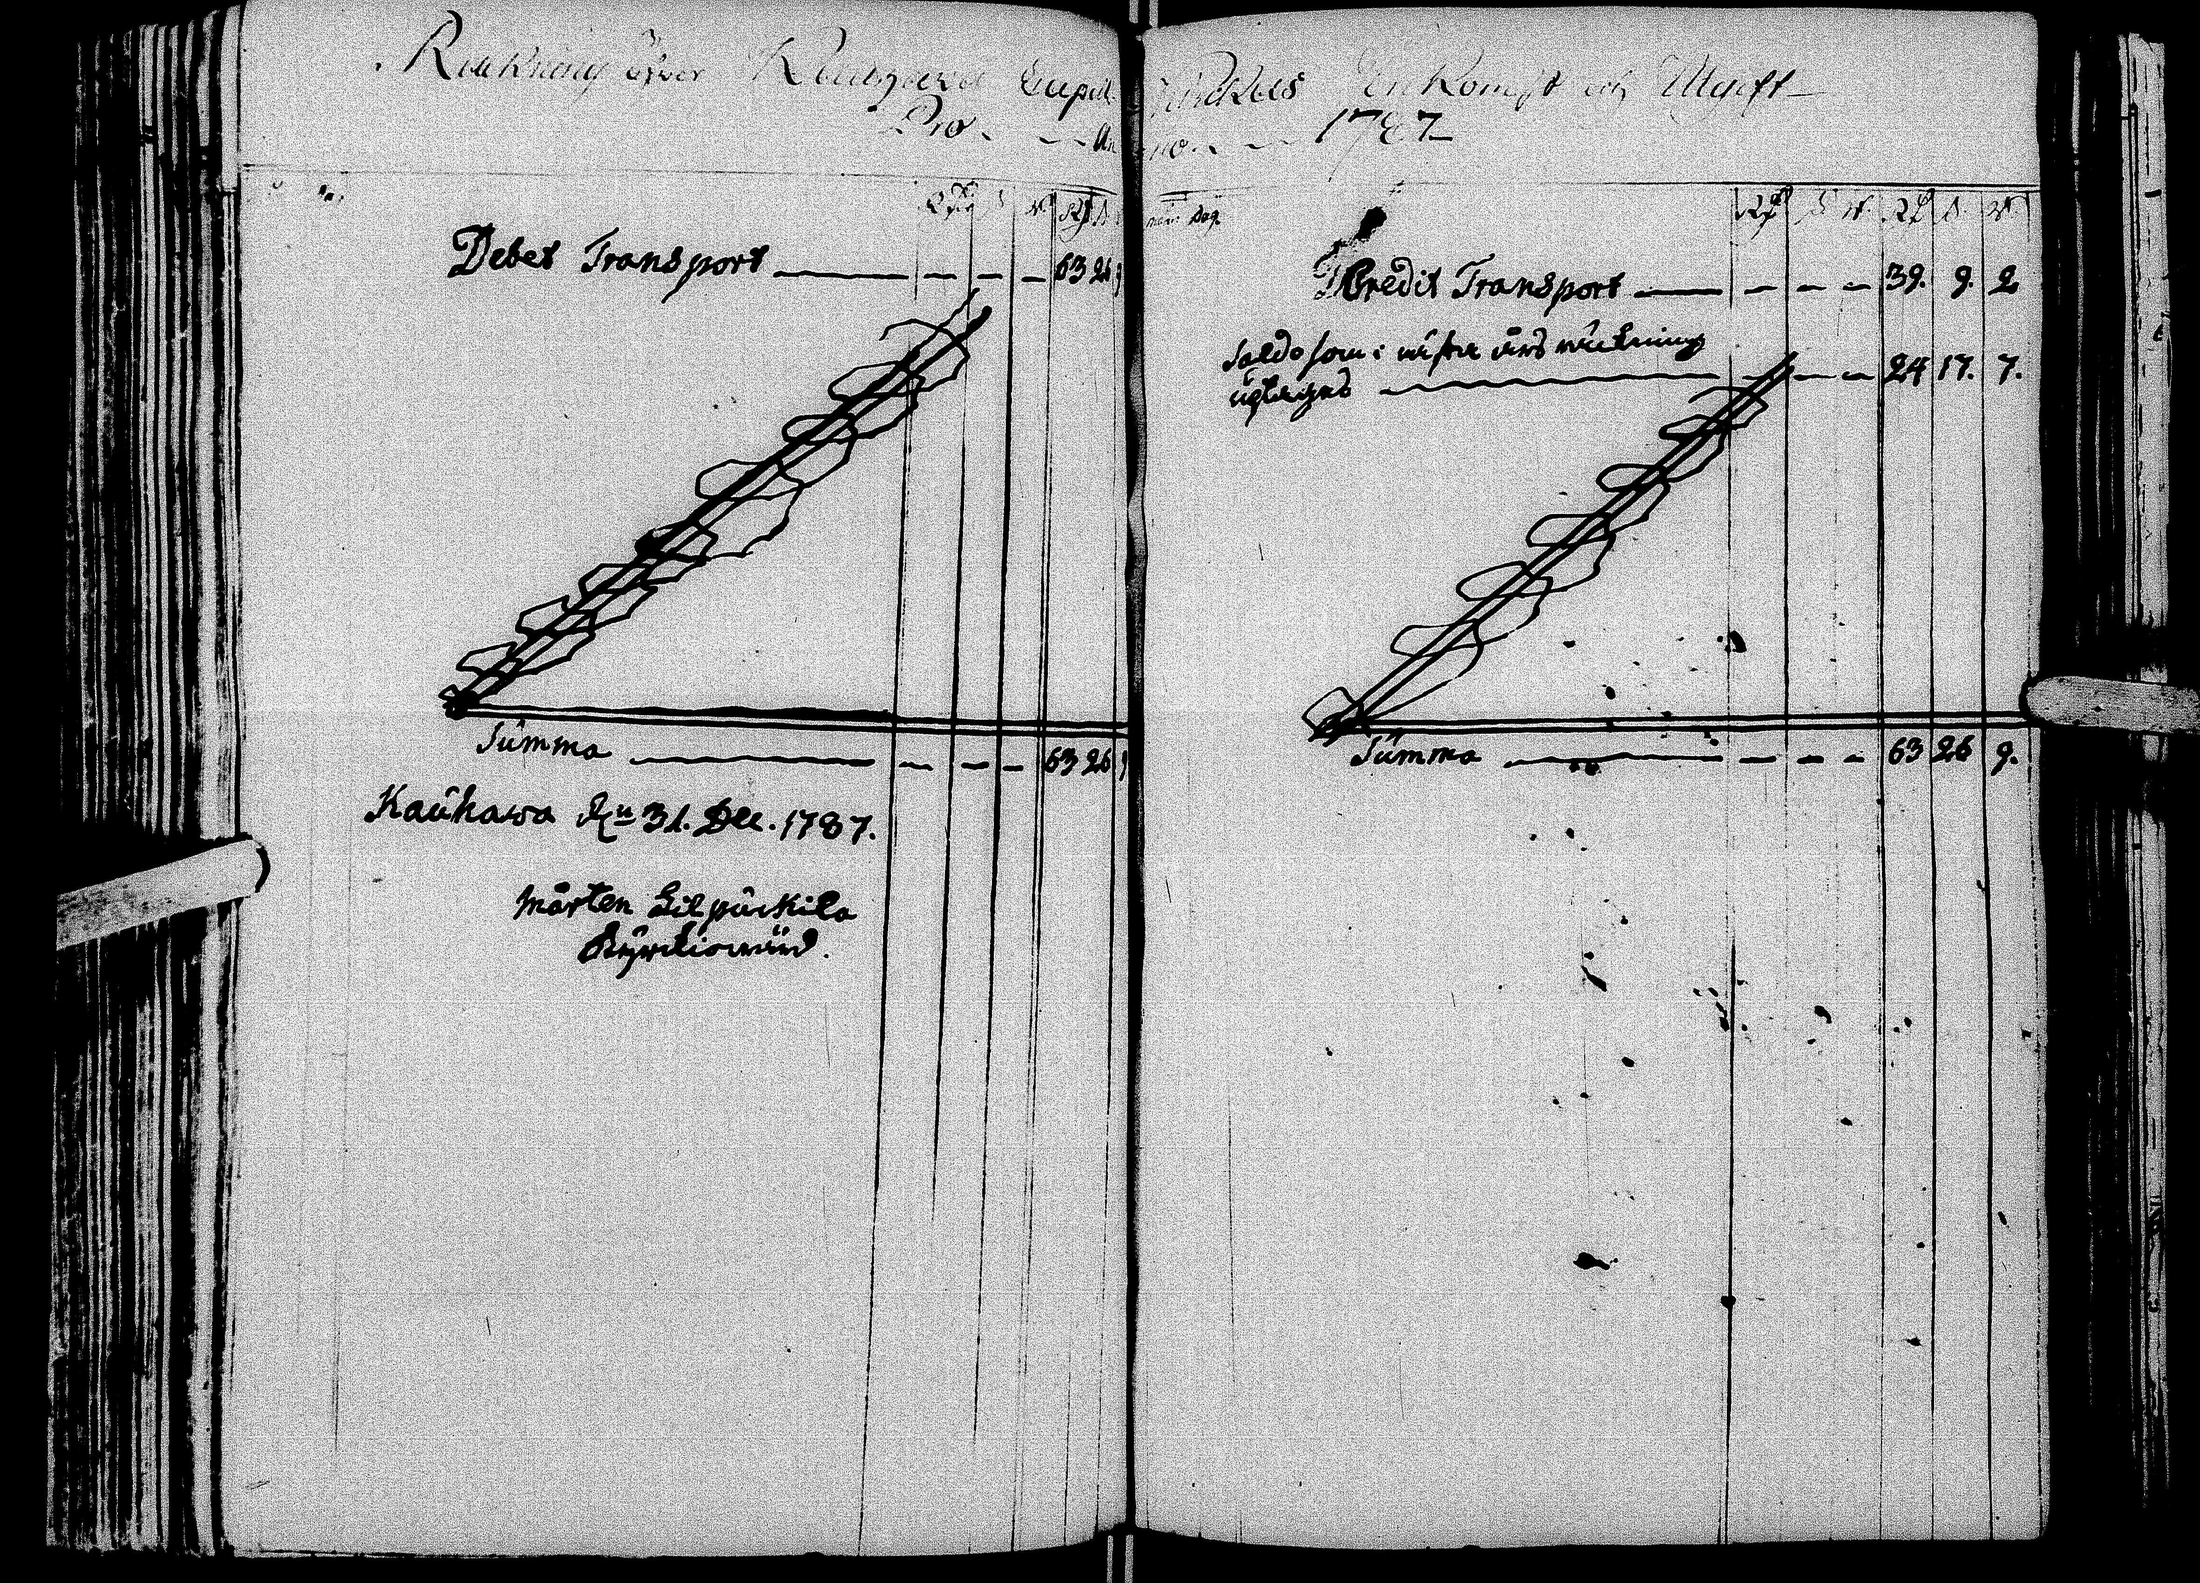 Räkning öfver Kauhava Capell Kyrckas Inkomst och Utgift
Pro Anno 1787
Rd s. r. Rd s.
Debet Transport 63 26 9
Summa 63 26 9
Kauhawa dn 31. Dec. 1787.
Mårten Lilpückila
Kyrckiowärd.
Rd s. r. Rd s. r.
Credit Transport 39. 9. 2
Saldo som i nästa års räckning
üptages 24 17. 7.
Summa 63 26 9.